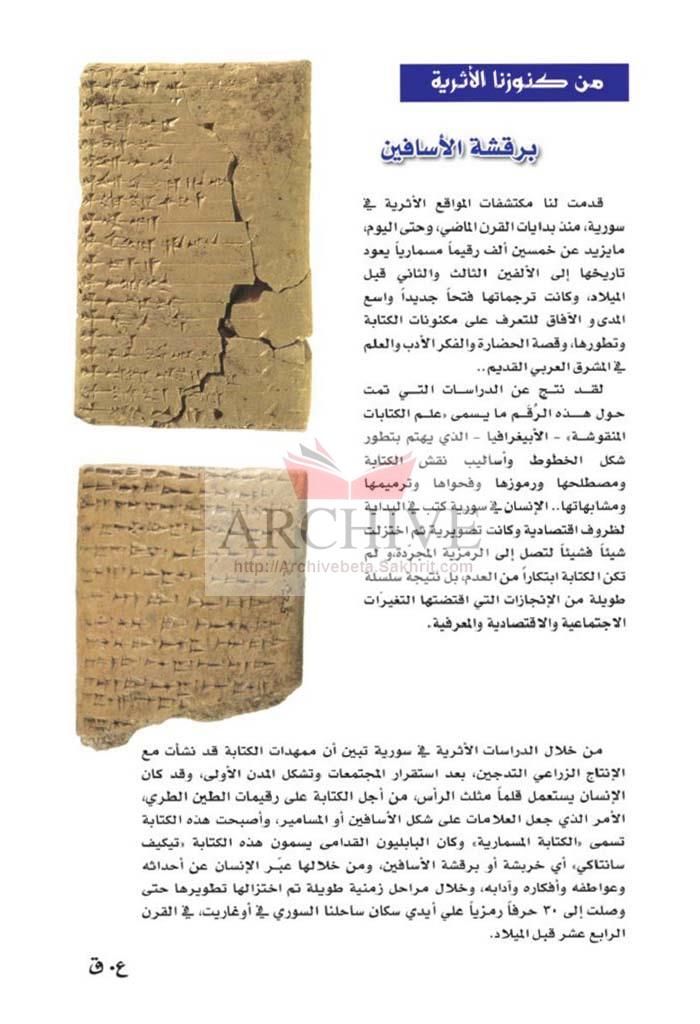 من كنوزنا الأثرية
برقشة الأسافين
قدمت لنا مكتشفات المواقع الأثرية في
سورية، منذ بدايات القرن الماضي، وحتى اليوم،
مايزيد عن خمسين ألف رقيماً مسمارياً يعود
تاريخها إلى الألفين الثالث والثاني قبل
الميلاد، وكانت ترجماتها فتحاً جديداً واسع
المدى و الآفاق للتعرف على مكنونات الكتابة
وتطورها، وقصة الحضارة والفكر الأدب والعلم
في المشرق العربي القديم..
لقد نتج عن الدراسات التي تمت
حول هذه الرُقم ما يسمى «علم الكتابات
المنقوشة» - الأبيغرافيا - الذي يهتم بتطور
شكل الخطوط وأساليب نقش الكتابة
ومصطلحها ورموزها وفحواها وترميمها
ومشابهاتها.. الإنسان في سورية كتب في البداية
لظروف اقتصادية وكانت تصويرية ثم اختزلت
شيئاً فشيئاً لتصل إلى الرمزية المجردة، و لم
تكن الكتابة ابتكاراً من العدم، بل نتيجة سلسلة
طويلة من الإنجازات التي اقتضتها التغيّرات
الاجتماعية والاقتصادية والمعرفية.
ARCHIVE
http://Archivebeta.Sakhrit.com
من خلال الدراسات الأثرية في سورية تبين أن ممهدات الكتابة قد نشأت مع
الإنتاج الزراعي التدجين، بعد استقرار المجتمعات وتشكل المدن الأولى، وقد كان
الإنسان يستعمل قلماً مثلث الرأس، من أجل الكتابة على رقيمات الطين الطري،
الأمر الذي جعل العلامات على شكل الأسافين أو المسامير، وأصبحت هذه الكتابة
تسمى «الكتابة المسمارية» وكان البابليون القدامى يسمون هذه الكتابة «تيكيف
سانتاكي»، أي خربشة أو برقشة الأسافين، ومن خلالها عبّر الإنسان عن أحداثه
وعواطفه وأفكاره وآدابه، وخلال مراحل زمنية طويلة تم اختزالها تطويرها حتى
وصلت إلى ٣٠ حرفاً رمزياً علي أيدي سكان ساحلنا السوري في أوغاريت، في القرن
الرابع عشر قبل الميلاد.
ع. ق